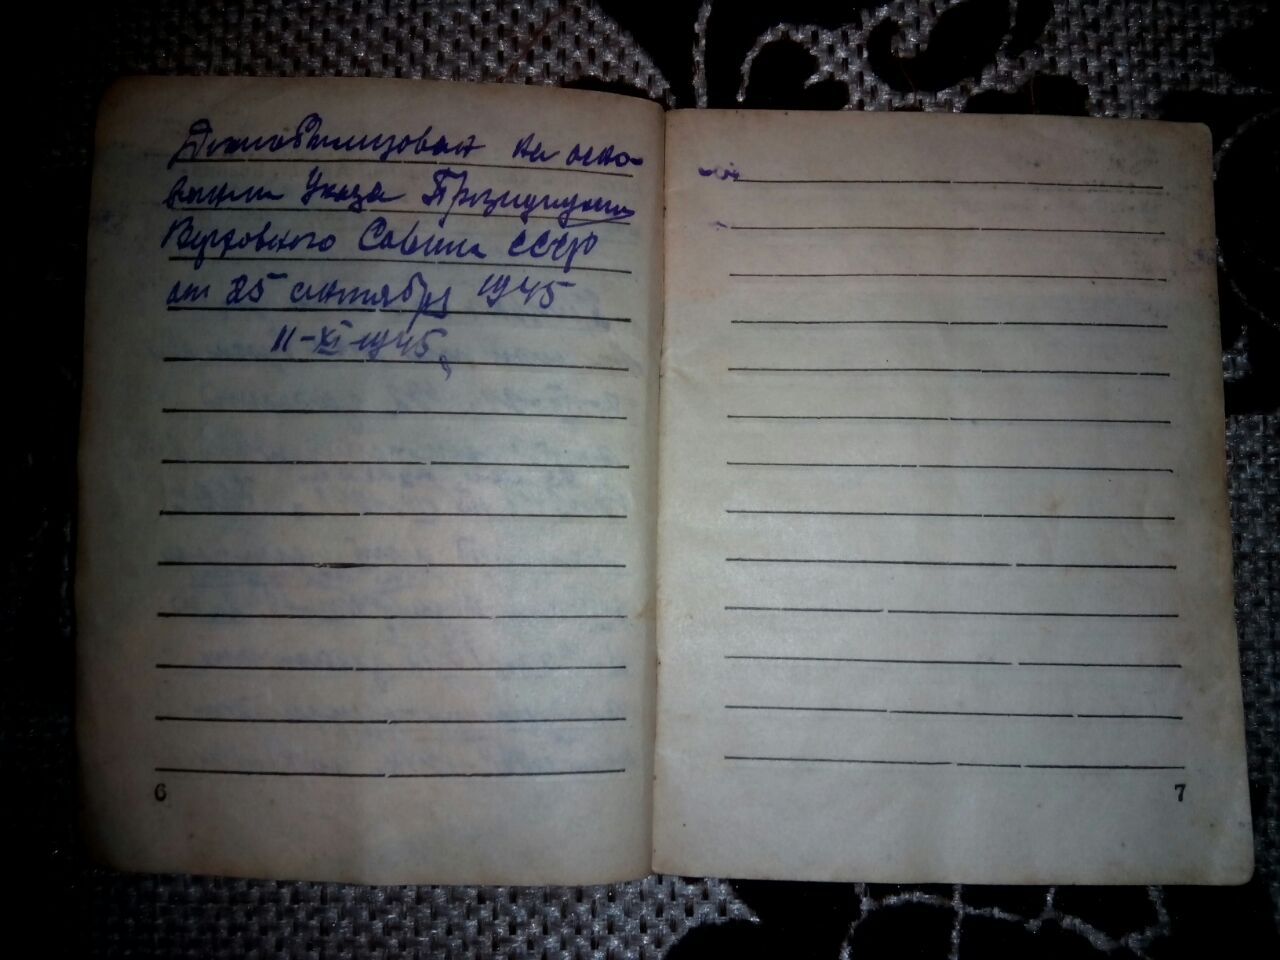 Демобилизован на осно-
вании Указа Президиума
Верховного Совета СССР
от 25 сентября 1945
11-XI-1945
6
7